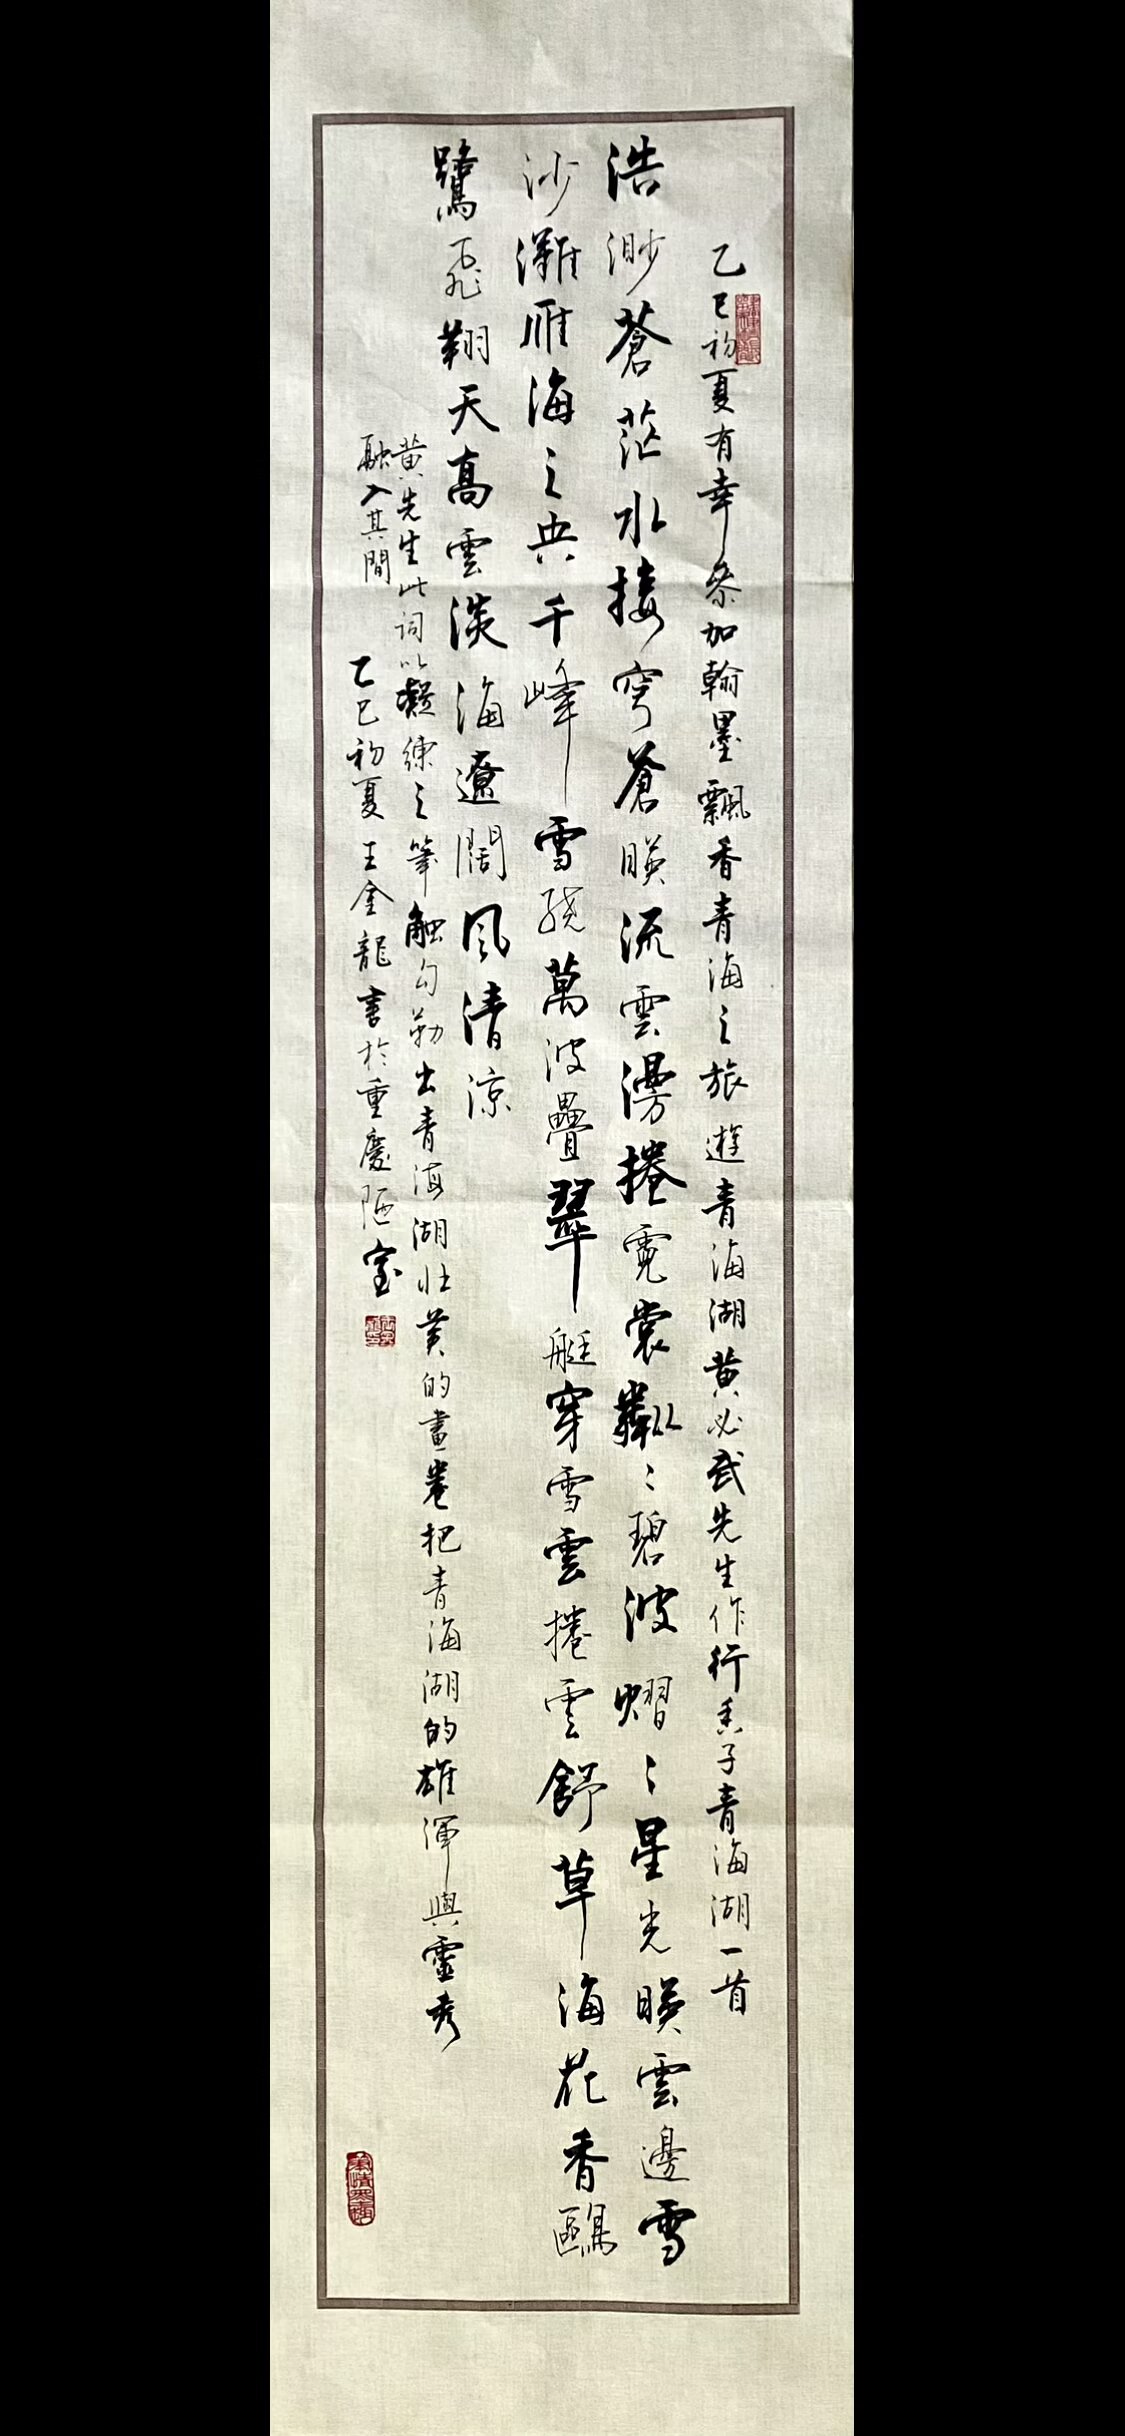 乙巳初夏有幸參加翰墨飄香青海之旅遊青海湖黄必武先生作行香子青海湖一首
浩渺蒼茫水接穹蒼映流雲漫捲霓裳粼〻碧波熠〻星光映雲邊雪
沙灘雁海之央千峰雪繞萬波疊翠艇穿雪雲捲雲舒草海花香鷗
鷺飛翔天高雲淡海遼闊風清涼
黄先生此詞以凝練之筆觸勾勒出青海湖壯美的畫卷把青海湖的雄渾與靈秀
融入其間
乙巳初夏王金龍書於重慶陋室